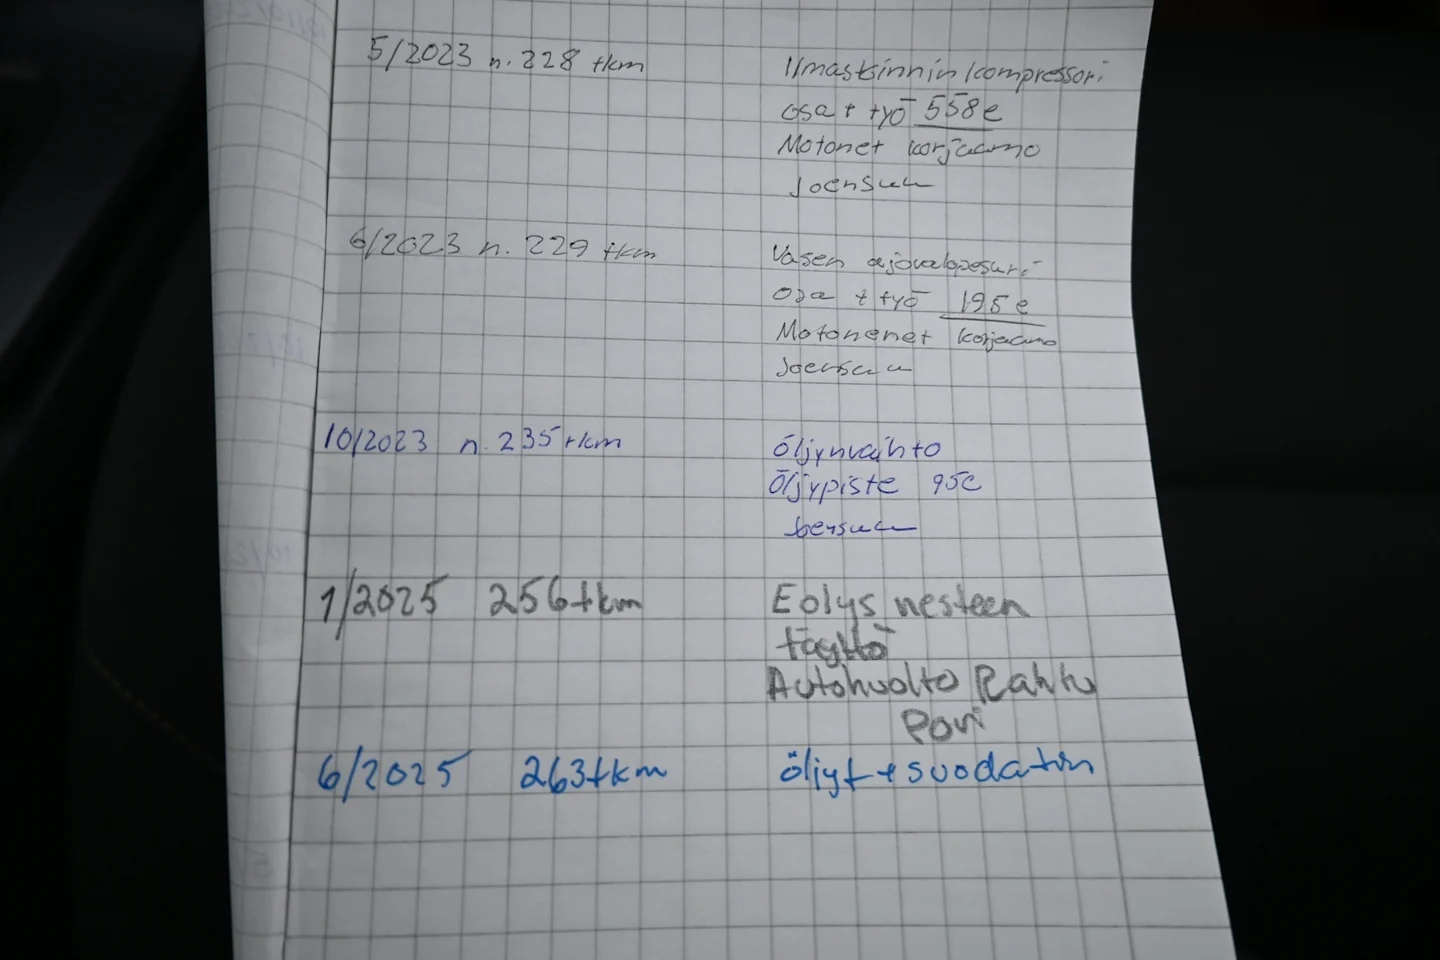 5/2023 n. 228 tkm
Ilmastinnin kompressori
osa + työ 558e
Motonet korjaamo
Joensuu
6/2023 n. 229 tkm
Vasen ajovalopesuri
osa + työ 195 e
Motonenet korjaamo
Joensuu
10/2023 n. 235 tkm
Öljynvaihto
Öljypiste 95e
Joensuu
1/2025 256tkm
Eolys nesteen
täyttö
Autohuolto Rahtu
Pori
6/2025 263tkm
öljyt + suodatin